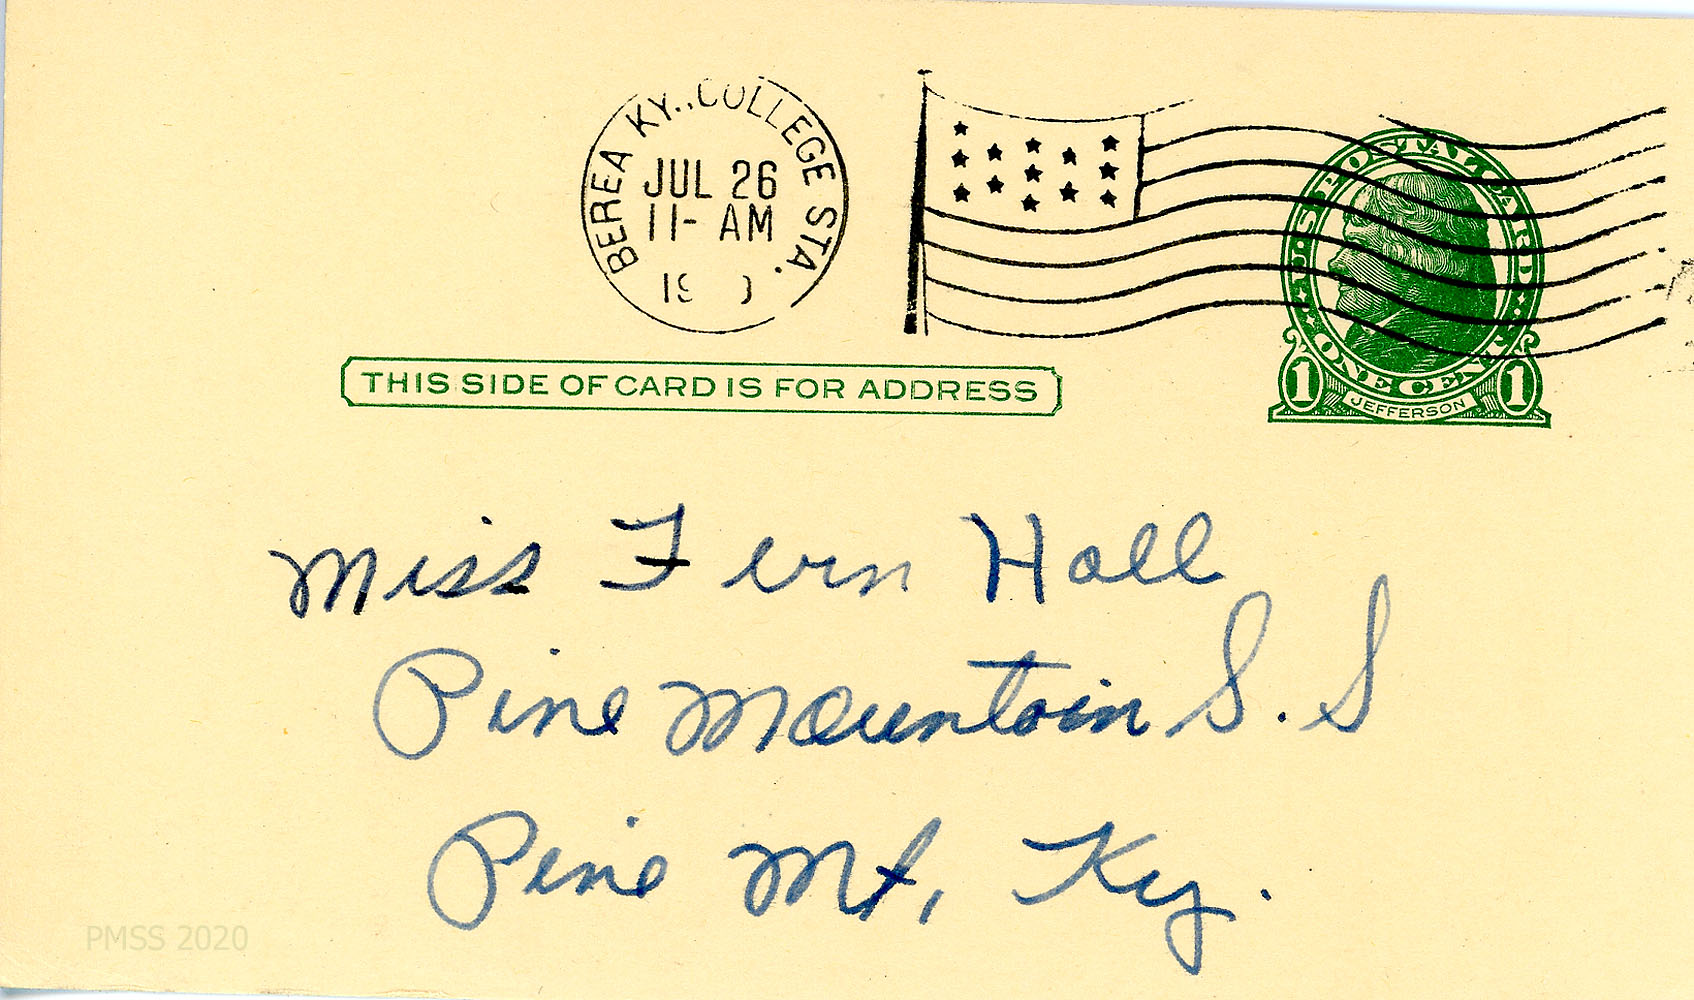 BEREA KY., COLLEGE STA.
JUL 26
11- AM
19
U·S·POSTAL CARD·
ONE CENT
1 JEFFERSON 1
THIS SIDE OF CARD IS FOR ADDRESS
Miss Fern Hall
Pine Mountain S. S
Pine Mt, Ky.
PMSS 2020